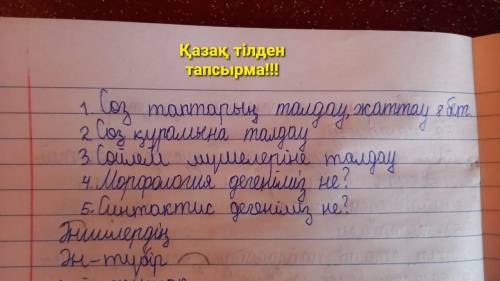 Қазақ тілден
тапсырма!!!
1. Сөз таптарың талдау, жаттау 8 бет.
2. Сөз құрамына талдау
3. Сөйлем мүшелеріне талдау
4. Морфология дегеніміз не?
5. Синтактис дегеніміз не?
Әншілердің
Ән-түбір